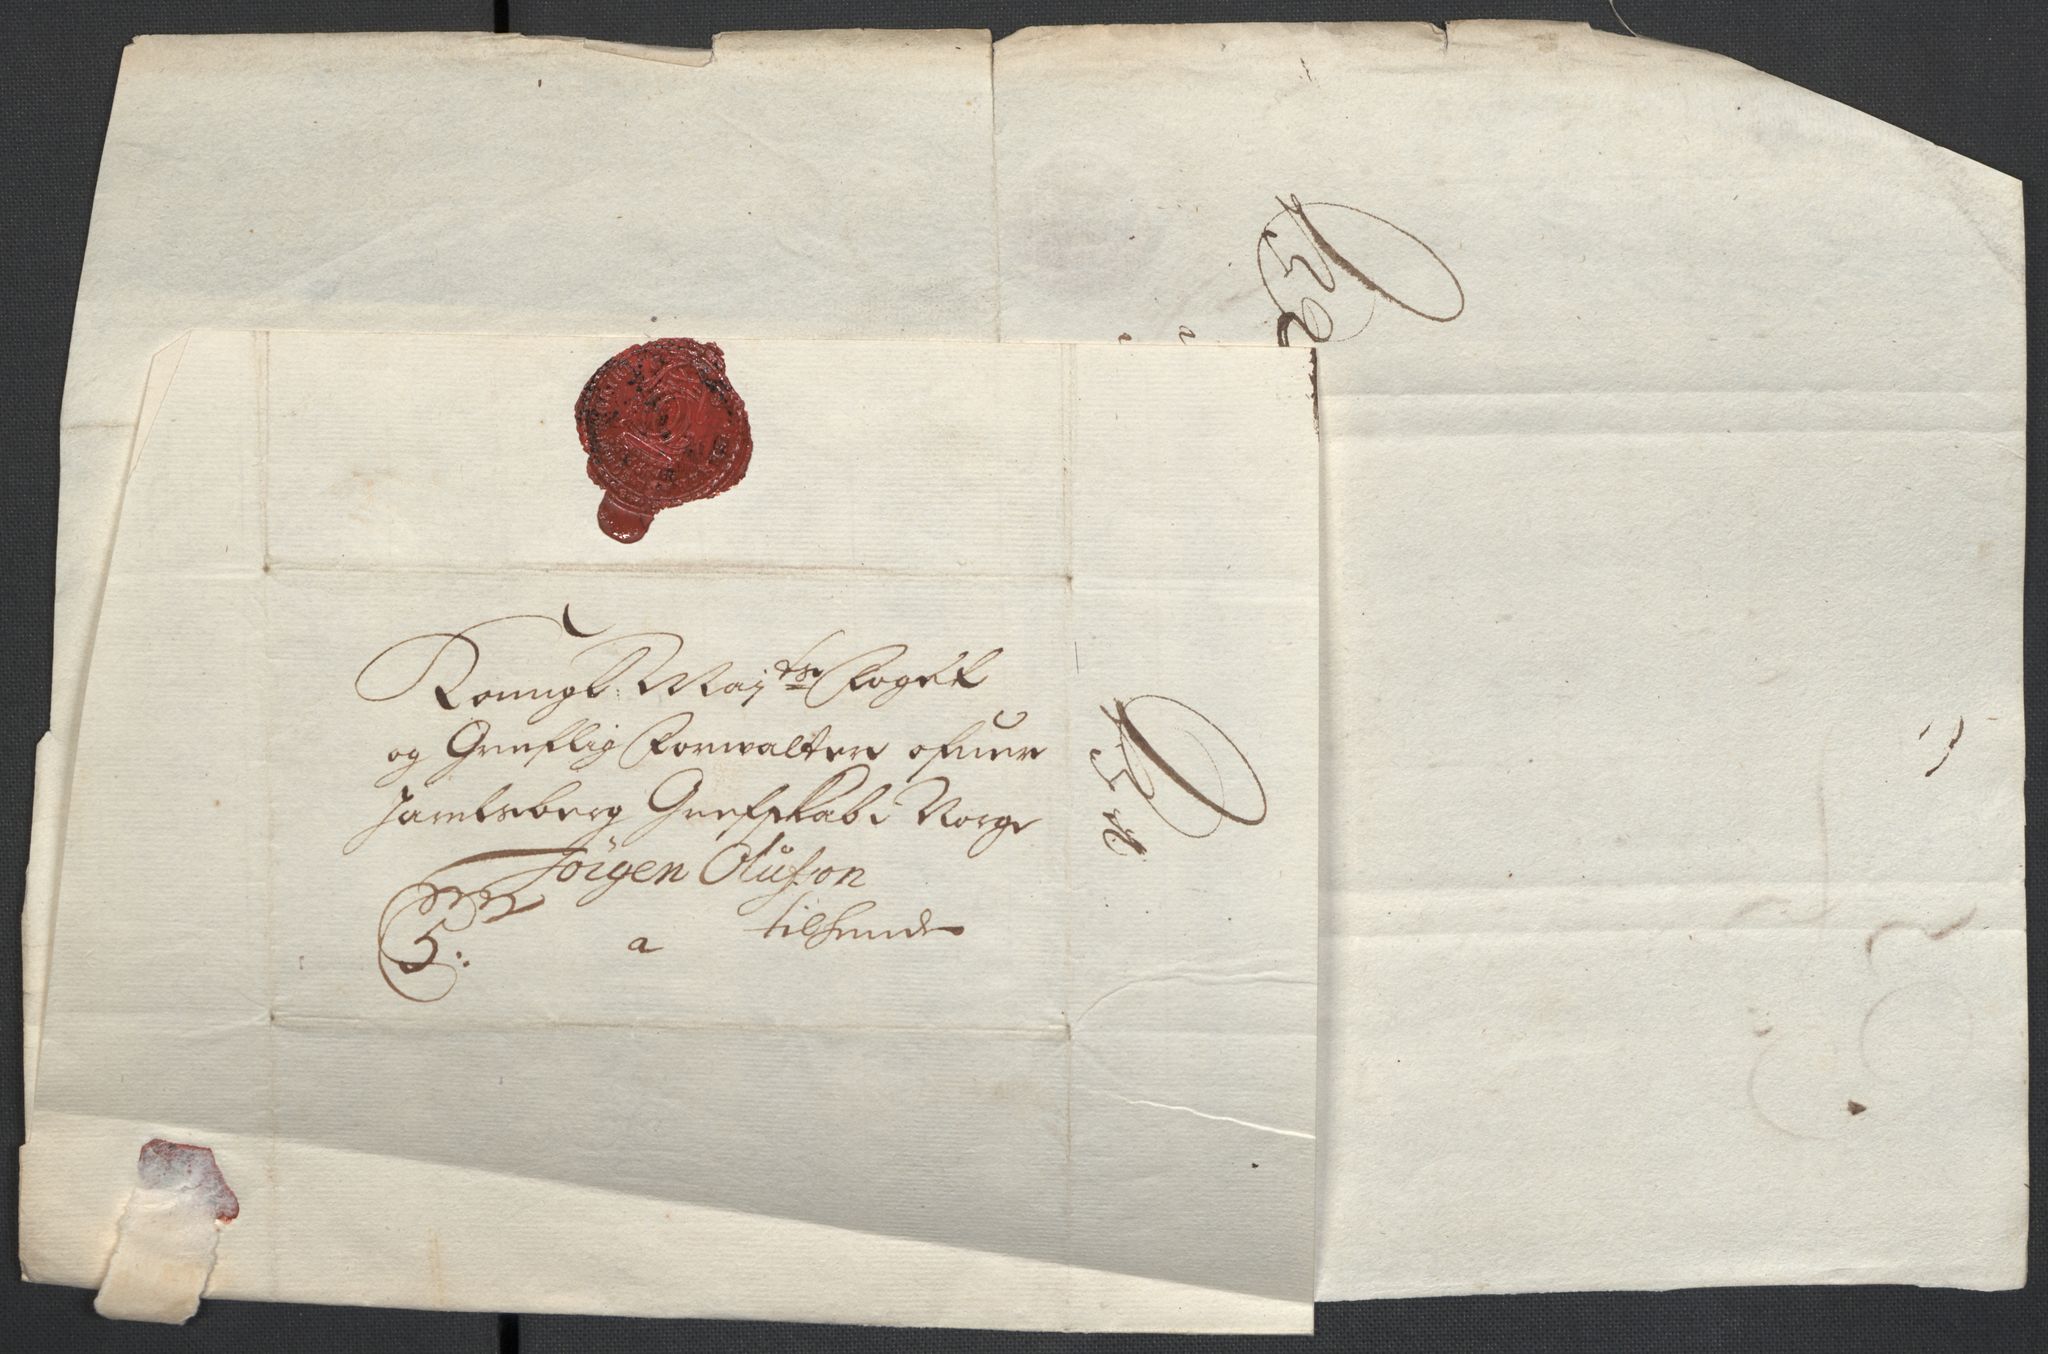 Kongl: May:ts Foget
og Greflig Forwalter ofuer
Jarelsberg Grefskab i Norge
Jörgen Olufson
a tilhende